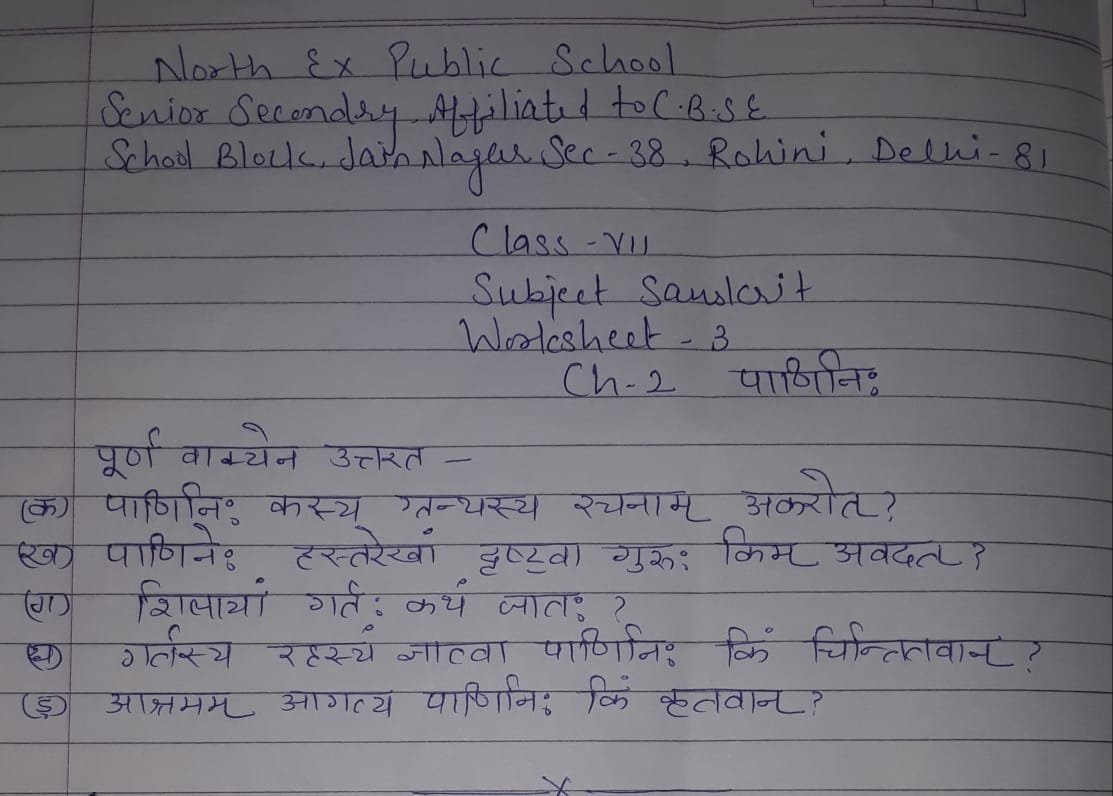 North Ex Public School
Senior Secondry Affiliated to C.B.S.E
School Block, Jain Nagar Sec-38, Rohini, Delhi-81
Class-VII
Subject Sanskrit
Worksheet-3
Ch-2 पाणिनिः
पूर्ण वाक्येन उत्तरत –
(क) पाणिनिः कस्य ग्रन्थस्य रचनाम् अकरोत्?
(ख) पाणिनेः हस्तरेखां दृष्ट्वा गुरुः किम् अवदत्?
(ग) शिलायां गर्तः कथं जातः?
(घ) गर्तस्य रहस्यं ज्ञात्वा पाणिनिः किं चिन्तितवान्?
(ङ) आश्रमम् आगत्य पाणिनिः किं कृतवान्?
X